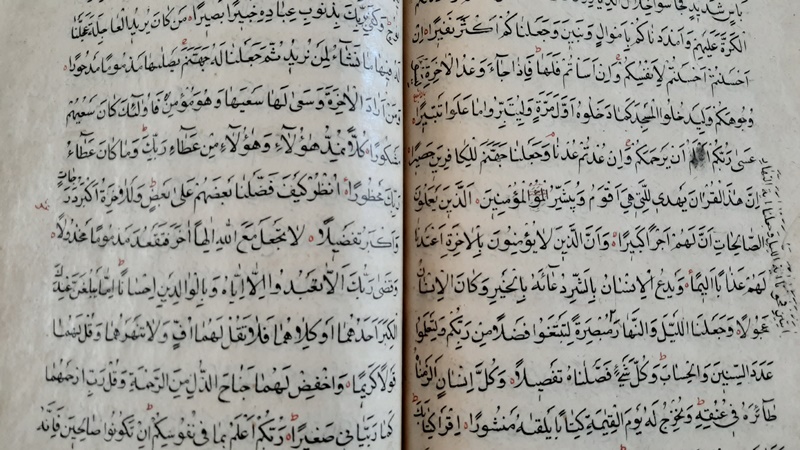 بَأْسٍ شَدِيدٍ فَجَاسُوا خِلَالَ
الْكَرَّةَ عَلَيْهِمْ وَأَمْدَدْنَاكُمْ بِأَمْوَالٍ وَبَنِينَ وَجَعَلْنَاكُمْ أَكْثَرَ نَفِيرًا إِنْ
أَحْسَنْتُمْ أَحْسَنْتُمْ لِأَنْفُسِكُمْ وَإِنْ أَسَأْتُمْ فَلَهَا فَإِذَا جَاءَ وَعْدُ الْآخِرَةِ
وُجُوهَكُمْ وَلِيَدْخُلُوا الْمَسْجِدَ كَمَا دَخَلُوهُ أَوَّلَ مَرَّةٍ وَلِيُتَبِّرُوا مَا عَلَوْا تَتْبِيرًا
عَسَى رَبُّكُمْ أَنْ يَرْحَمَكُمْ وَإِنْ عُدْتُمْ عُدْنَا وَجَعَلْنَا جَهَنَّمَ لِلْكَافِرِينَ حَصِيرًا
إِنَّ هَذَا الْقُرْآنَ يَهْدِي لِلَّتِي هِيَ أَقْوَمُ وَيُبَشِّرُ الْمُؤْمِنِينَ الَّذِينَ يَعْمَلُونَ
الصَّالِحَاتِ أَنَّ لَهُمْ أَجْرًا كَبِيرًا وَأَنَّ الَّذِينَ لَا يُؤْمِنُونَ بِالْآخِرَةِ أَعْتَدْنَا
لَهُمْ عَذَابًا أَلِيمًا وَيَدْعُ الْإِنْسَانُ بِالشَّرِّ دُعَاءَهُ بِالْخَيْرِ وَكَانَ الْإِنْسَانُ
عَجُولًا وَجَعَلْنَا اللَّيْلَ وَالنَّهَارَ مُبْصِرَةً لِتَبْتَغُوا فَضْلًا مِنْ رَبِّكُمْ وَلِتَعْلَمُوا
عَدَدَ السِّنِينَ وَالْحِسَابَ وَكُلَّ شَيْءٍ فَصَّلْنَاهُ تَفْصِيلًا وَكُلَّ إِنْسَانٍ أَلْزَمْنَاهُ
طَائِرَهُ فِي عُنُقِهِ وَنُخْرِجُ لَهُ يَوْمَ الْقِيَمَةِ كِتَابًا يَلْقَيهُ مَنْشُورًا اقْرَأْ كِتَابَكَ
رَبِّكَ بِذُنُوبِ عِبَادِهِ خَبِيرًا بَصِيرًا مَنْ كَانَ يُرِيدُ الْعَاجِلَةَ عَجَّلْنَا
لَهُ فِيهَا مَا نَشَاءُ لِمَنْ نُرِيدُ ثُمَّ جَعَلْنَا لَهُ جَهَنَّمَ يَصْلَيهَا مَذْمُومًا مَدْحُورًا
وَمَنْ أَرَادَ الْآخِرَةَ وَسَعَى لَهَا سَعْيَهَا وَهُوَ مُؤْمِنٌ فَأُولَئِكَ كَانَ سَعْيُهُمْ
مَشْكُورًا كُلًّا نُمِدُّ هَؤُلَاءِ وَهَؤُلَاءِ مِنْ عَطَاءِ رَبِّكَ وَمَا كَانَ عَطَاءُ
رَبِّكَ مَحْظُورًا انْظُرْ كَيْفَ فَضَّلْنَا بَعْضَهُمْ عَلَى بَعْضٍ وَلَلْآخِرَةُ أَكْبَرُ دَرَجَاتٍ
وَأَكْبَرُ تَفْضِيلًا لَا تَجْعَلْ مَعَ اللَّهِ إِلَهًا آخَرَ فَتَقْعُدَ مَذْمُومًا مَخْذُولًا
وَقَضَى رَبُّكَ أَلَّا تَعْبُدُوا إِلَّا إِيَّاهُ وَبِالْوَالِدَيْنِ إِحْسَانًا إِمَّا يَبْلُغَنَّ عِنْدَكَ
الْكِبَرَ أَحَدُهُمَا أَوْ كِلَاهُمَا فَلَا تَقُلْ لَهُمَا أُفٍّ وَلَا تَنْهَرْهُمَا وَقُلْ لَهُمَا
قَوْلًا كَرِيمًا وَاخْفِضْ لَهُمَا جَنَاحَ الذُّلِّ مِنَ الرَّحْمَةِ وَقُلْ رَبِّ ارْحَمْهُمَا
كَمَا رَبَّيَانِي صَغِيرًا رَبُّكُمْ أَعْلَمُ بِمَا فِي نُفُوسِكُمْ إِنْ تَكُونُوا صَالِحِينَ فَإِنَّهُ